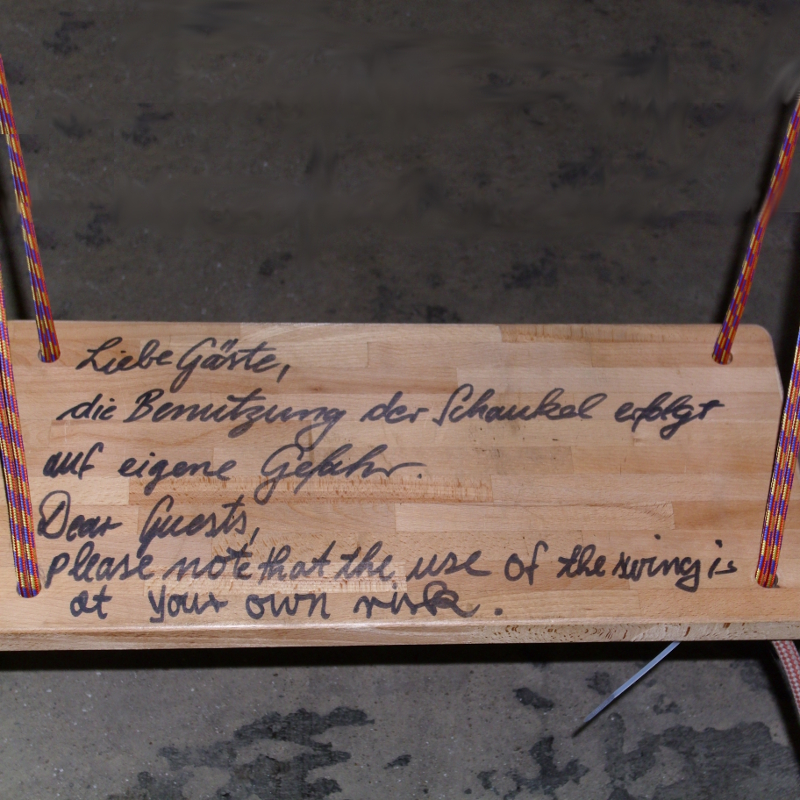 Liebe Gäste,
die Benutzung der Schaukel erfolgt
auf eigene Gefahr.
Dear Guests,
please note that the use of the swing is
at your own risk.